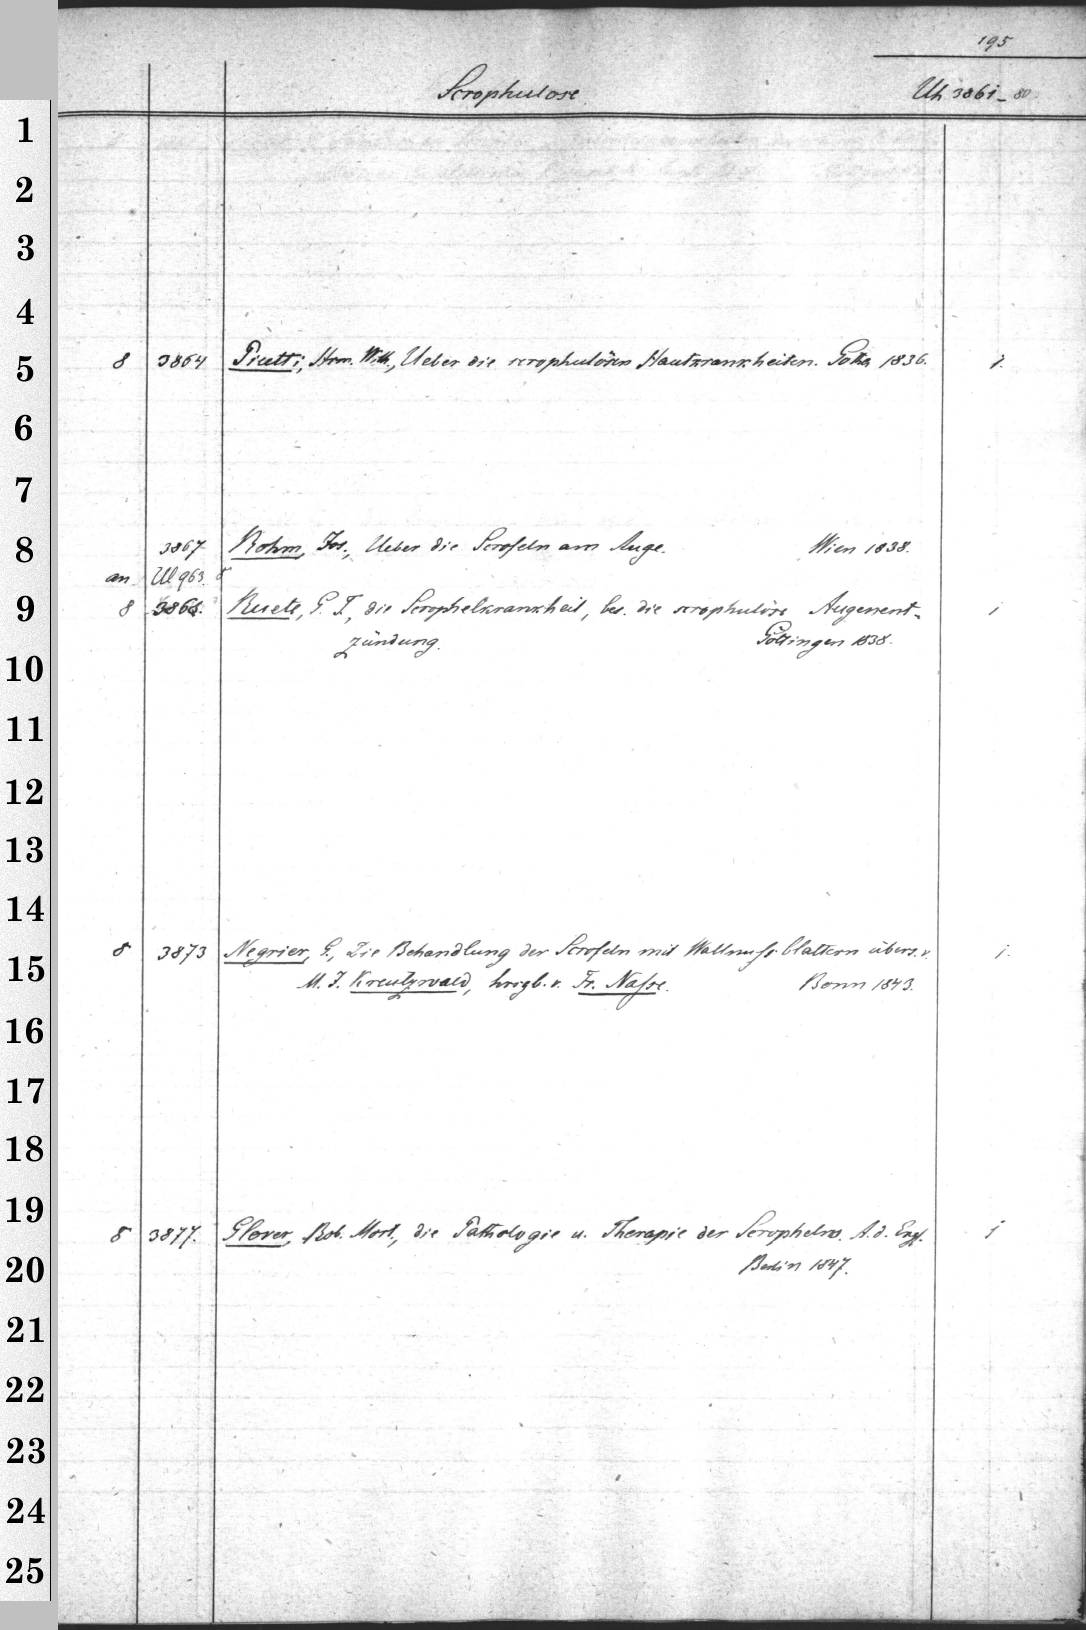 195
Scrophulose. Uh 3861-80.
1
2
3
4
5 8 3864 Picetti, Hrm. Wilh., Ueber die scrophulösen Hautkrankheiten. Gotha 1836. i.
6
7
8 3867 Rohm, Jos., Ueber die Scrofeln am Auge. Wien 1838.
an Ul 963. 8
9 8 3868. Ruete, G. T., die Scrophelkrankheit, bes. die scrophulöse Augenent-
zündung. Göttingen 1838. i
10
11
12
13
14
15 8 3873 Negrier, G., Die Behandlung der Scrofeln mit Wallnussblattern übers. v. i.
M. J. Kreutzwald, hrsgb. v. Fr. Nasse. Bonn 1843.
16
17
18
19 8 3877. Glover, Rob. Mort., die Pathologie u. Therapie der Scropheln. A. d. Engl. i
20 Berlin 1847.
21
22
23
24
25